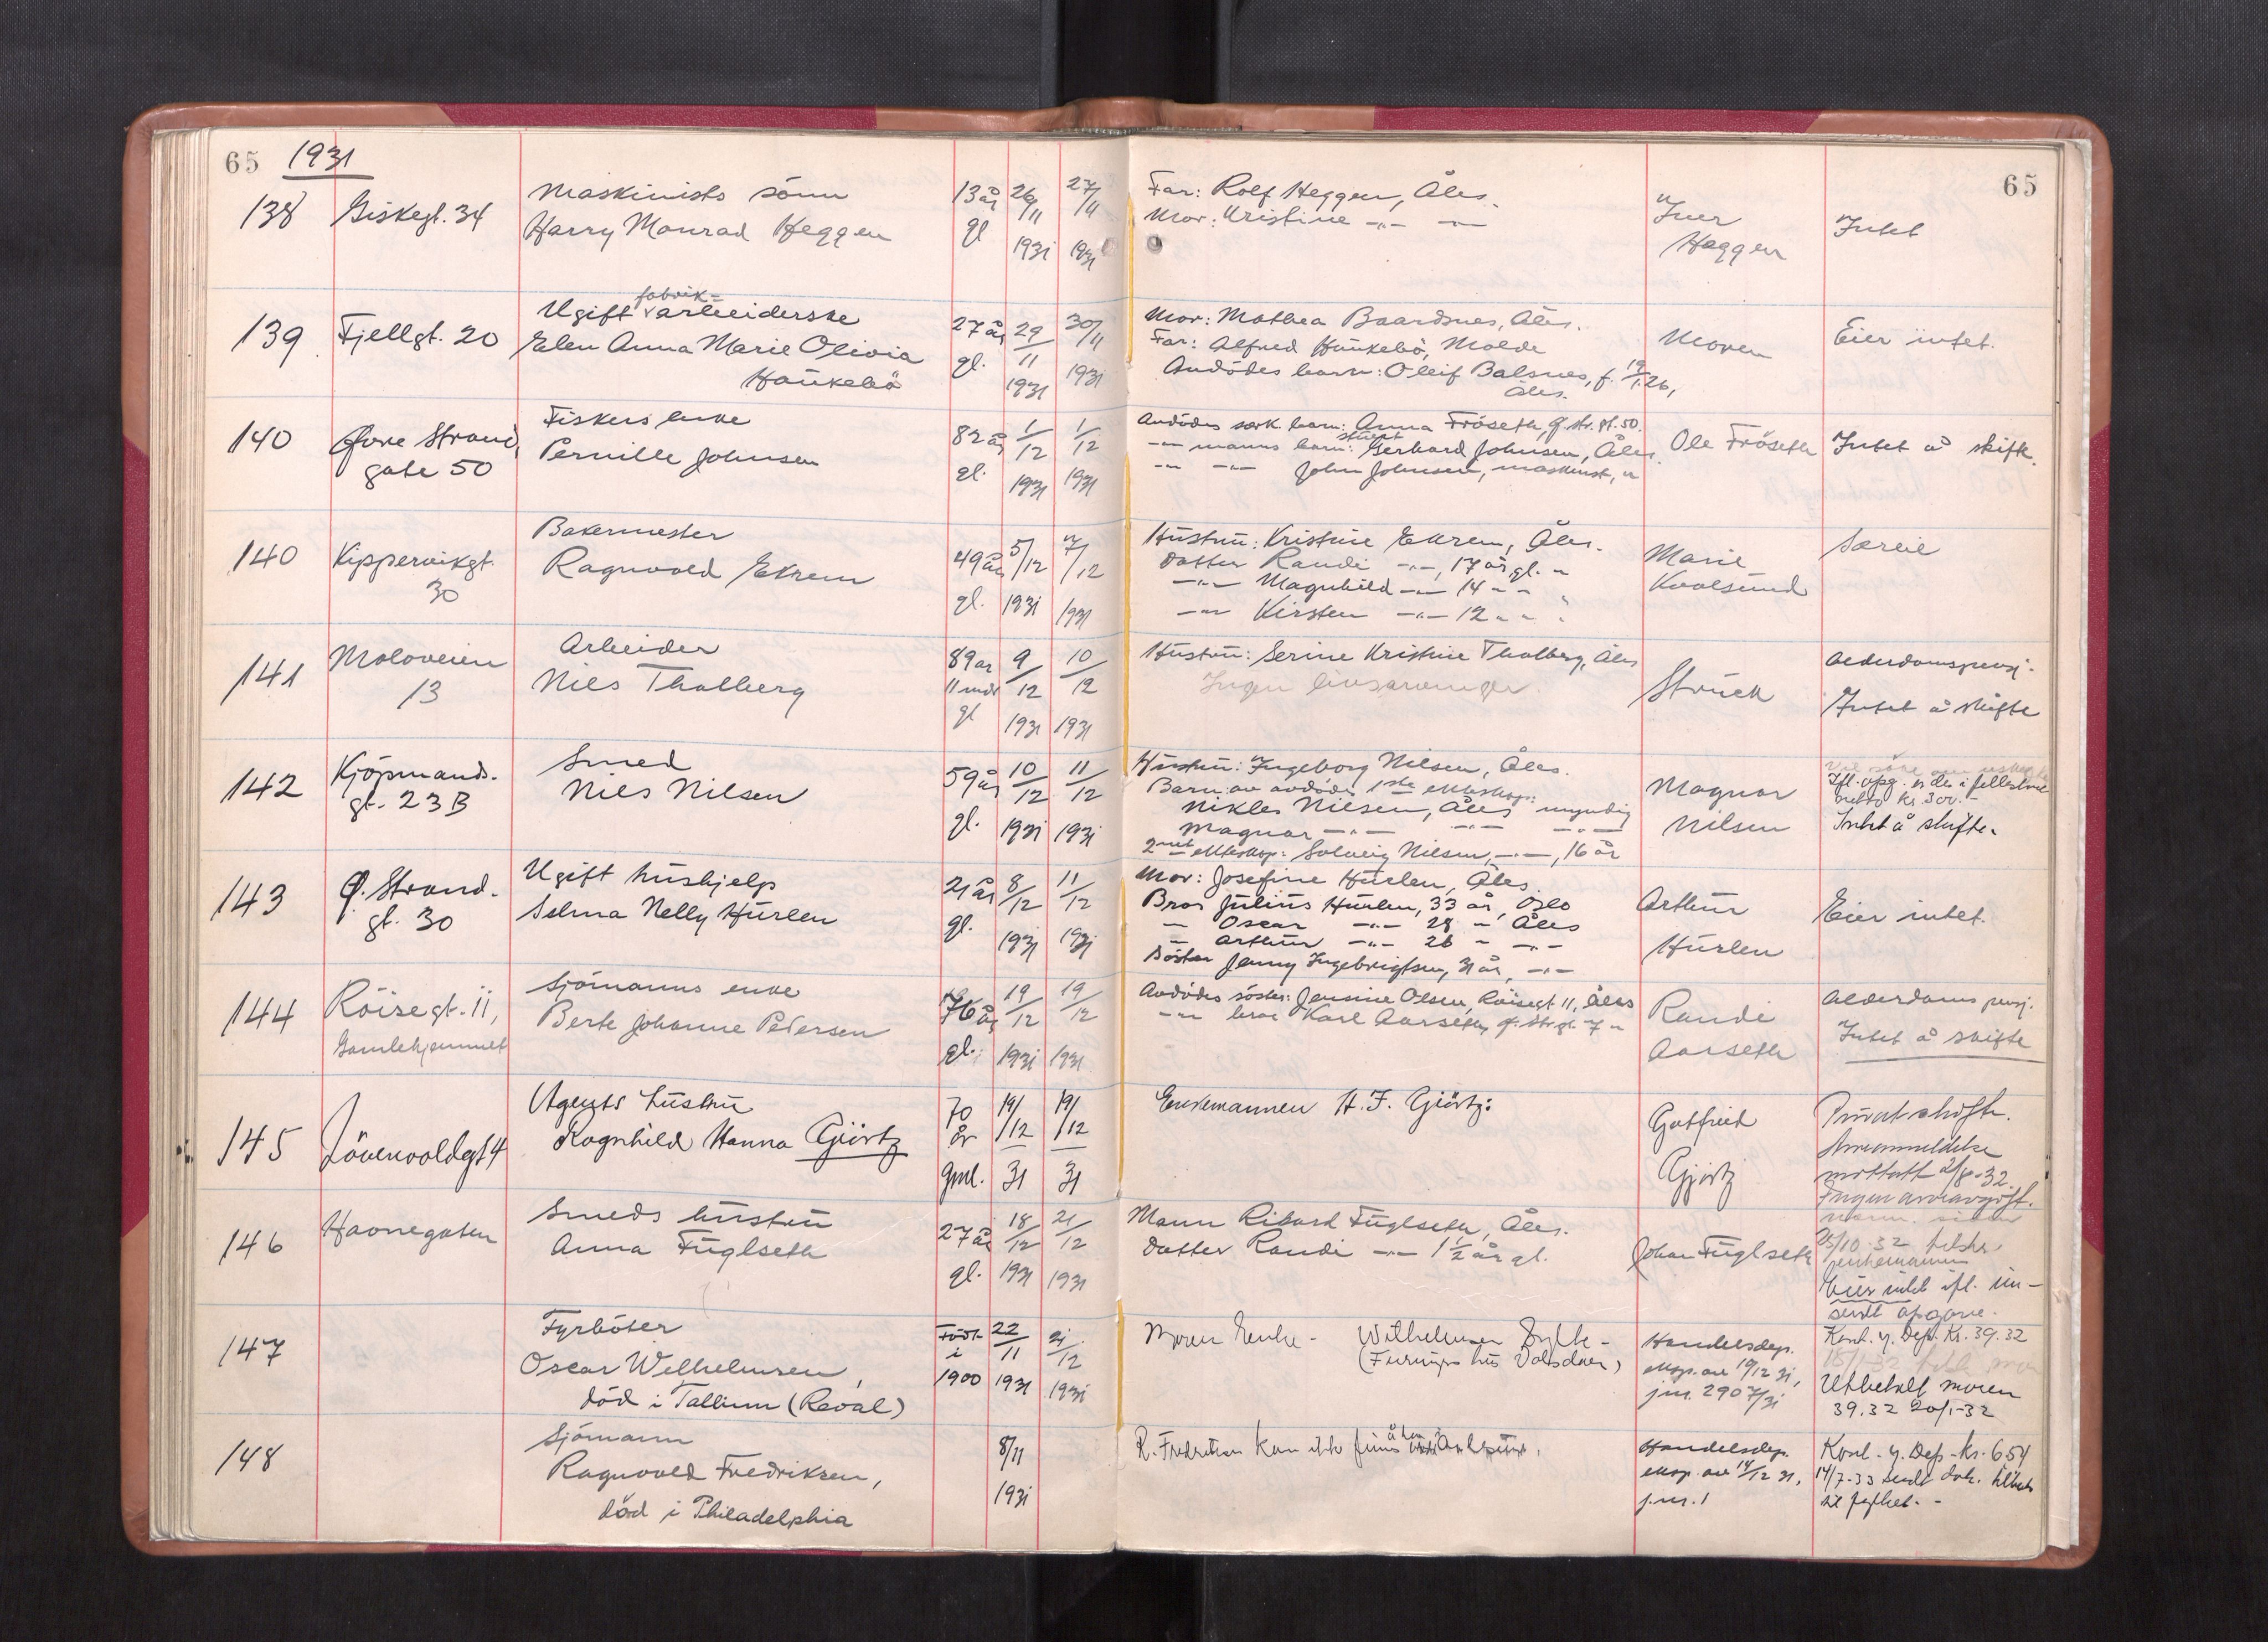 65 1931
65
138 Giskegt. 34
Maskinists sönn
Harry Monrad Heggen
13 år gl
26/11 1931
27/11 1931
Far: Rolf Heggen, Åles.
Mor: Kristine -"- -"-
Iver Heggen
Intet
139 Fjellgt. 20
fabrik-
Ugift arbeiderske
Elen Anna Marie Olivia
Haukebö
27 år gl.
29/11 1931
30/11 1931
Mor: Mathea Baardsnes, Åles.
Far: Alfred Haukebö, Molde
Avdödes barn: Oleif Balsnes, f. 19/1.26,
Åles.
Moren
Eier intet.
140 Övre Strand
gate 50
Fiskers enke
Pernille Johnsen
82 år gl.
1/12 1931
1/12 1931
Avdödes særk. barn: Anna Fröseth, Ö. str. gt. 50.
-"- manns barn: Gerhard Johnsen, Åles.
-"- -"- John Johnsen, maskinist, "
Ole Fröseth
Intet å skifte
140 Kippervikgt.
30
Bakermester
Ragnvald Ekrem
49 år gl.
5/12 1931
7/12 1931
Hustru: Kristine Ekrem, Åles.
Datter Randi -"-, 17 år gl. "
-"- Magnhild -"- 14 " " "
-"- Kirsten -"- 12 " " "
Marie
Kvalsund
Særeie
141 Moloveien
13
Arbeider
Nils Thalberg
89 år
11 mdr
gl
9/12 1931
10/12 1931
Hustru: Serine Kristine Thalberg, Åles
Ingen livsarvinger.
Struck
Alderdomspensj.
Intet å skifte
142 Kjöpmands.
gt. 23 B
Smed
Nils Nilsen
59 år gl.
10/12 1931
11/12 1931
Hustru: Ingeborg Nilsen, Åles.
Barn av avdödes 1ste ekteskap:
Nikles Nilsen, Åles umyndig
Magnar -"- -"- -"-
2net ekteskap: Solveig Nilsen, -"-, 16 år
Magnar
Nilsen
Ifl. opg. er des i fellesboet
netto kr. 300.-
Intet å skifte.
143 Ö. Strand.
gt. 30
Ugift hushjelp
Selma Nelly Hurlen
21 år gl.
8/12 1931
11/12 1931
Mor: Josefine Hurlen, Åles
Bror Julius Hurlen, 33 år, Oslo
" Oscar -"- 28 " Åles
" Arthur -"- 26 " -"-
Söster Jenny Ingebrigtsen, 31 år, -"-
Arthur
Hurlen
Eier intet.
144 Röisegt. 11,
Gamlehjemmet
Sjömanns enke
Berte Johanne Pedersen
76 år gl.
19/12 1931
19/12 1931
Avdödes söster: Jensine Olsen, Röisegt 11, Åles
-"- bror Karl Aarseth, Ö. Str. gt. 7 "
Randi
Aarseth
Alderdoms pensj.
Intet å skifte
145 Lövenvoldgt 4
Agents hustru
Ragnhild Hanna Gjörtz
70 år gml.
19/12 31
19/12 31
Enkemannen H. F. Gjörtz:
Gotfried
Gjörtz
Privat skifte.
Arveanmeldelse
mottatt 2/8-32.
Ingen arveavgift.
146 Havnegaten
Smeds hustru
Anna Fuglseth
27 år gl.
18/12 1931
21/12 1931
Mann Rikard Fuglseth, Åles.
Datter Randi -"- 1 1/2 år gl.
Johan Fuglseth
25/10-32
enkemannen
Eier intet ifl. inn-
sendt opgave.
147
Fyrböter
Oscar Wilhelmsen,
död i Tallinn (Reval)
Född i 1900
22/11 1931
21/12 1931
Moren Enke - Wilhelmsen
Handelsdep.
eksp. av 19/12 31,
jnr. 2907/31
Kont. y. Dep. Kr. 39.32
Utbetalt moren
39.32 20/1-32
148
Sjömann
Ragnvald Fredriksen,
död i Philadelphia
8/11 1931
R. Fredriksen kan ikke finnes
Handelsdep.
eksp. av 14/12 31,
j.nr. 1
Kont. y. Dep. kr. 654
14/7-33 sendt dok. tilbake